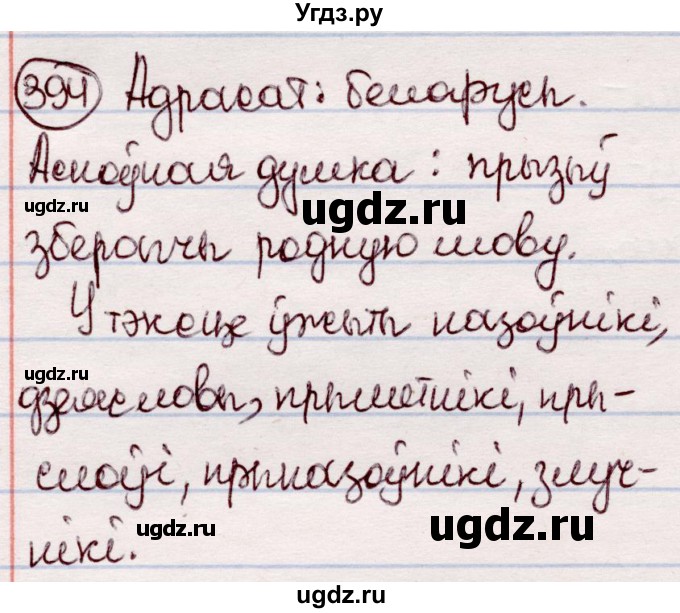 Угдз.ру
394 Адрасат: Беларусь.
Асноўная думка: прызыў
ugdz.ru
ugdz.ru
зберагчы родную мову.
У тэксце ўжыты назоўнікі,
ugdz.ru
дзеясловы, прыметнікі, пры-
слоўі, прыназоўнікі, злуч-
ugdz.ru
ugdz.ru
нікі.
ugdz.ru